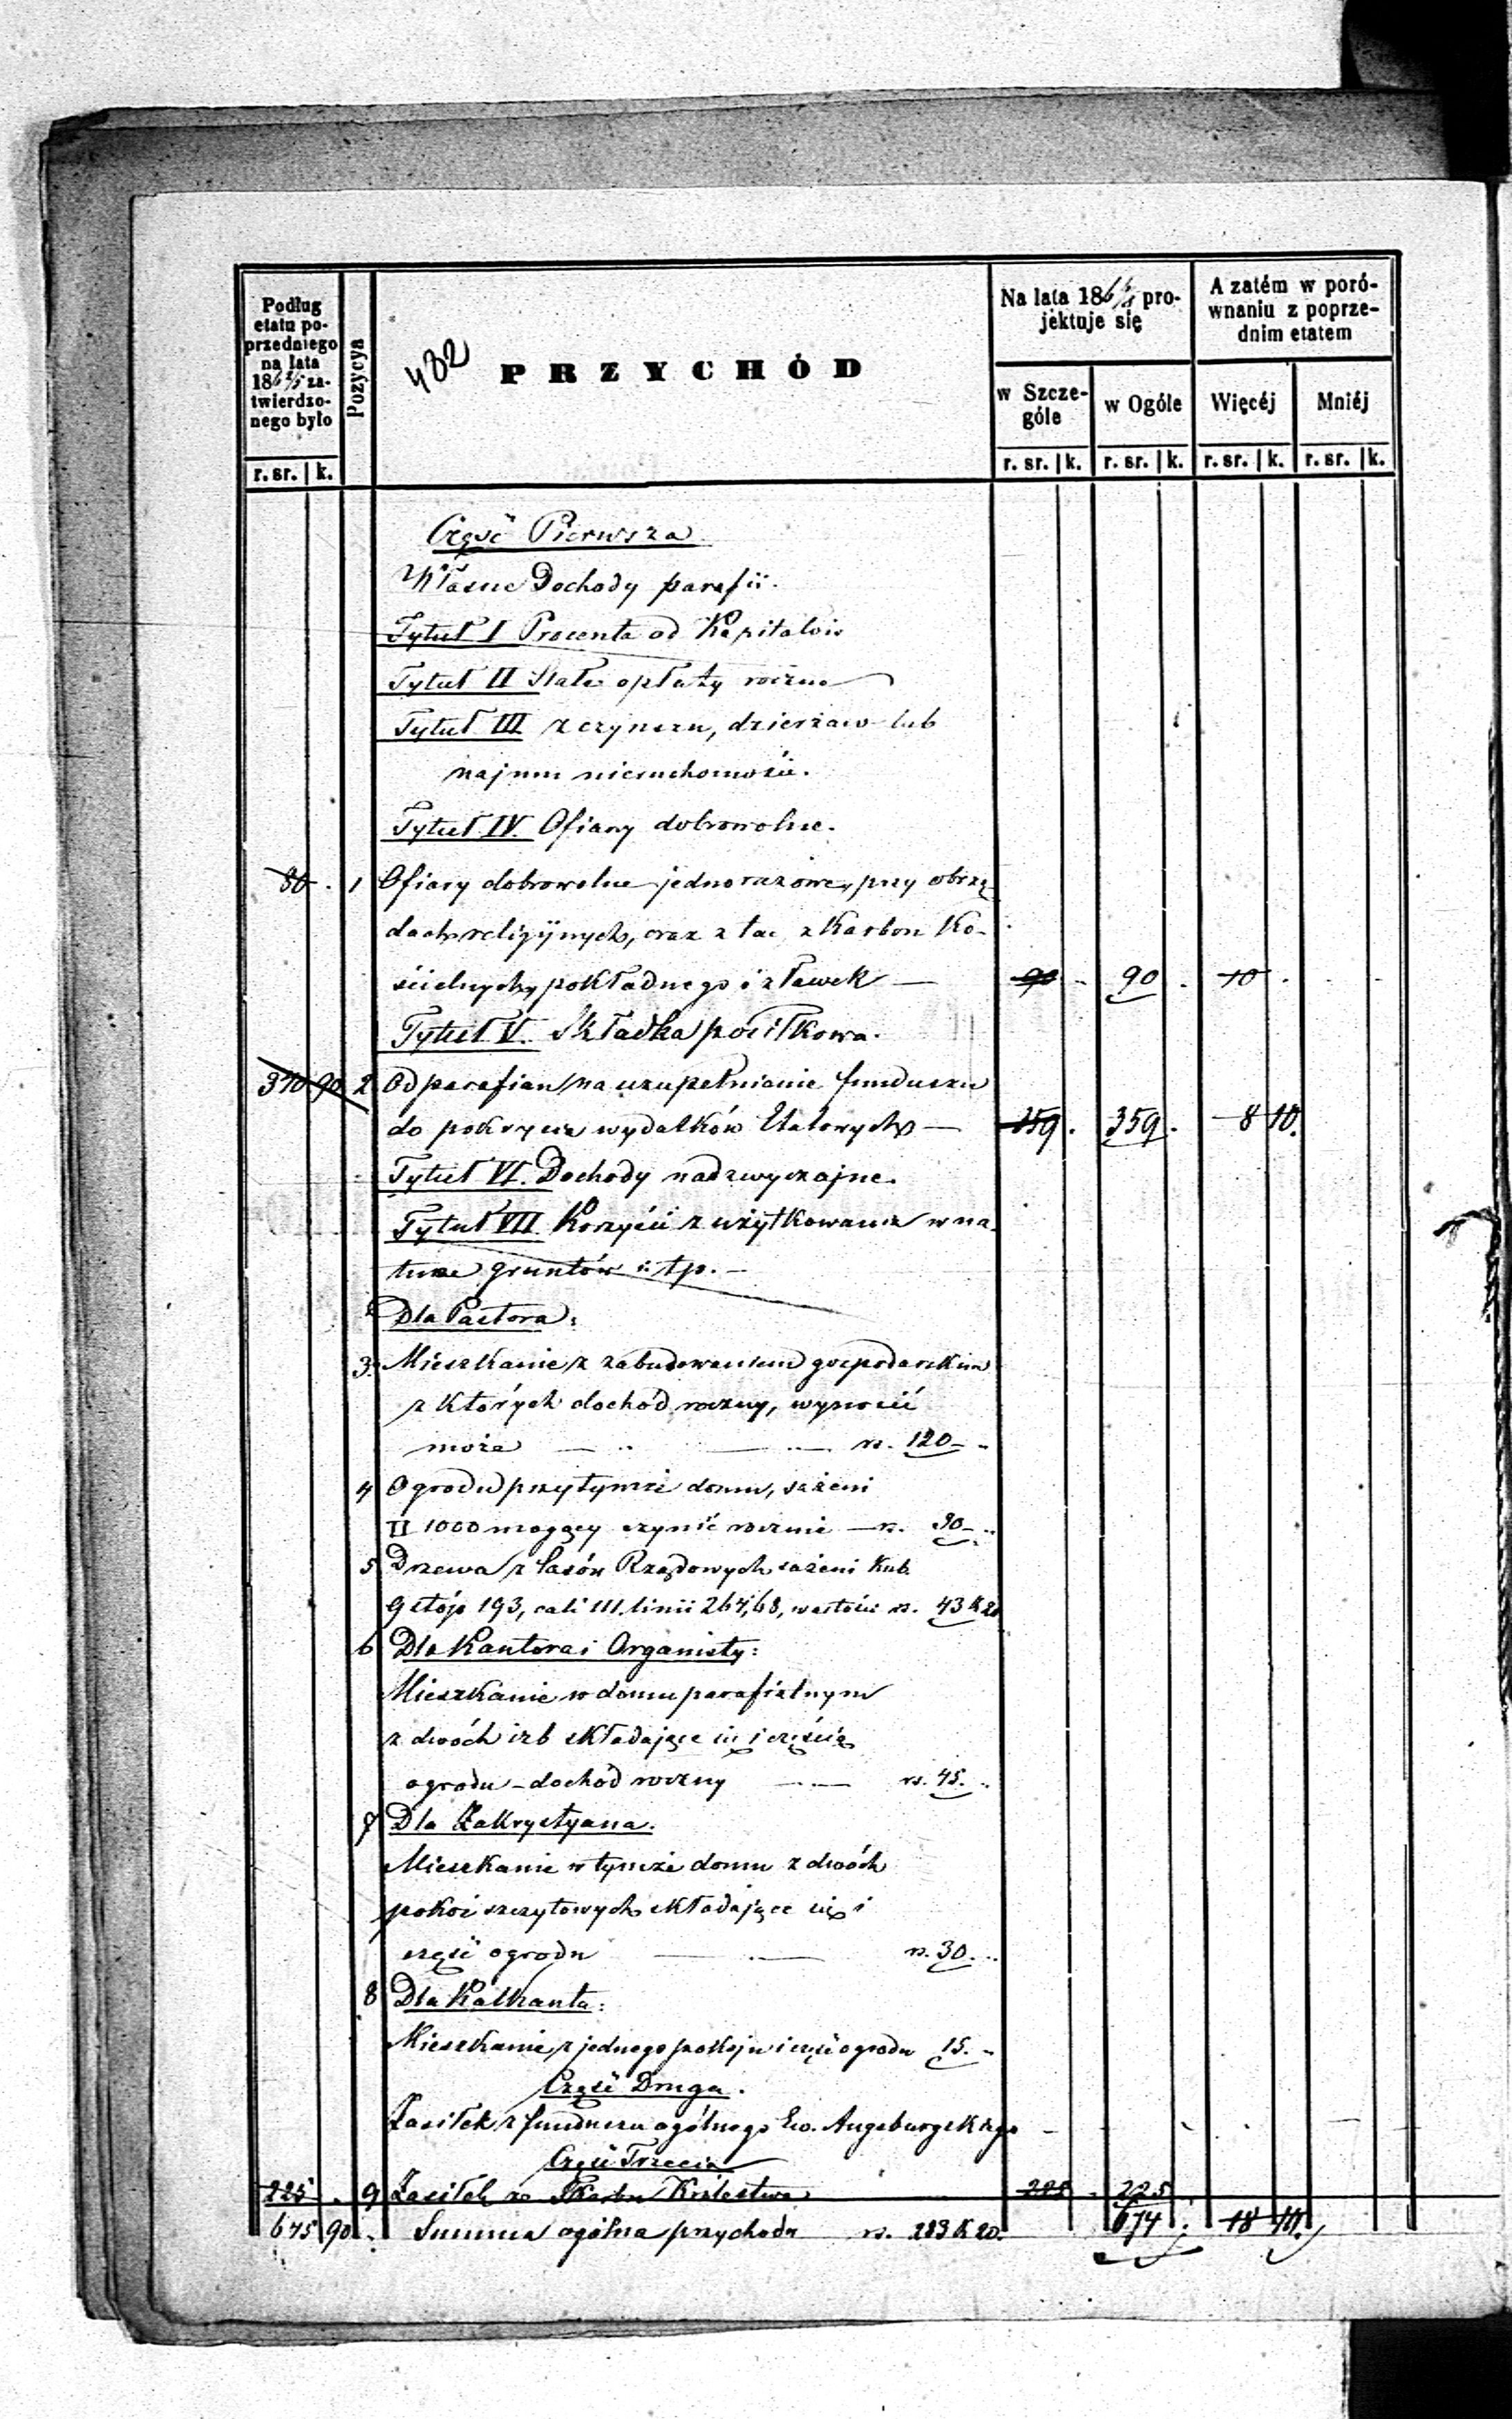 Podług
etatu po-
przedniego
na lata
186 za-
twierdzo-
nego było
r. sr. | k.
Pozycya
482
PRZYCHÓD
Na lata 186 pro-
jektuje się
w Szcze-
góle
w Ogóle
A zatém w poró-
wnaniu z poprze-
dnim etatem
Więcéj
Mniéj
r. sr. | k.
r. sr. | k.
r. sr. | k.
r. sr. | k.
Część Pierwsza
Własne Dochody parafii.
Tytuł I Procenta od Kapitałów
Tytuł II Stałe opłaty roczne
Tytuł III z czynszu, dzierżaw lub
najmu nieruchomości.
Tytuł IV. Ofiary dobrowolne.
80 . 1 Ofiary dobrowolne jednorazowe, przy obrzę-
dach religijnych, oraz z tac z Karbon Ko-
ścielnych, pokładnego i z ławek — 90 . 90 . 10 .
Tytuł V. Składka posiłkowa.
90 2 Od parafian na uzupełnianie funduszu
do pokrycia wydatków Etatowych — 359 . 359 . 8 10.
Tytuł VI. Dochody nadzwyczajne.
Tytuł VII Korzyści z użytkowania w na-
turze gruntów i tp. —
Dla Pastora:
3. Mieszkanie z zabudowaniem gospodarskim
z których dochód roczny, wynosić
może — rs. 120 —
4 Ogrodu przy tymże domu, sążeni
II 1000 mogący czynić rocznie — rs. 30 —
5 Drzewa z lasów Rządowych sążeni Kub.
9 stóp 193, cali 111. linii 264,68, wartości rs. 43 K 20
6 Dla Kantora i Organisty:
Mieszkanie w domu parafialnym
z dwóch izb składające się i częścią
ogrodu — dochód roczny — rs. 45.
7 Dla Zakrystyana.
Mieszkanie w tymże domu z dwóch
pokoi szczytowych składające się i
część ogrodu — rs. 30.
8 Dla Kalkanta:
Mieszkanie z jednego pokoju i część ogrodu 15. —
Część Druga.
Zasiłek z funduszu ogólnego Ew. Augsburgskiego —
Część Trzecia
225 . 9 Zasiłek ze Skarbu Królestwa 225 . 225
675 90 . Summa ogólna przychodu rs. 283 K 20. 674 . 18 10.